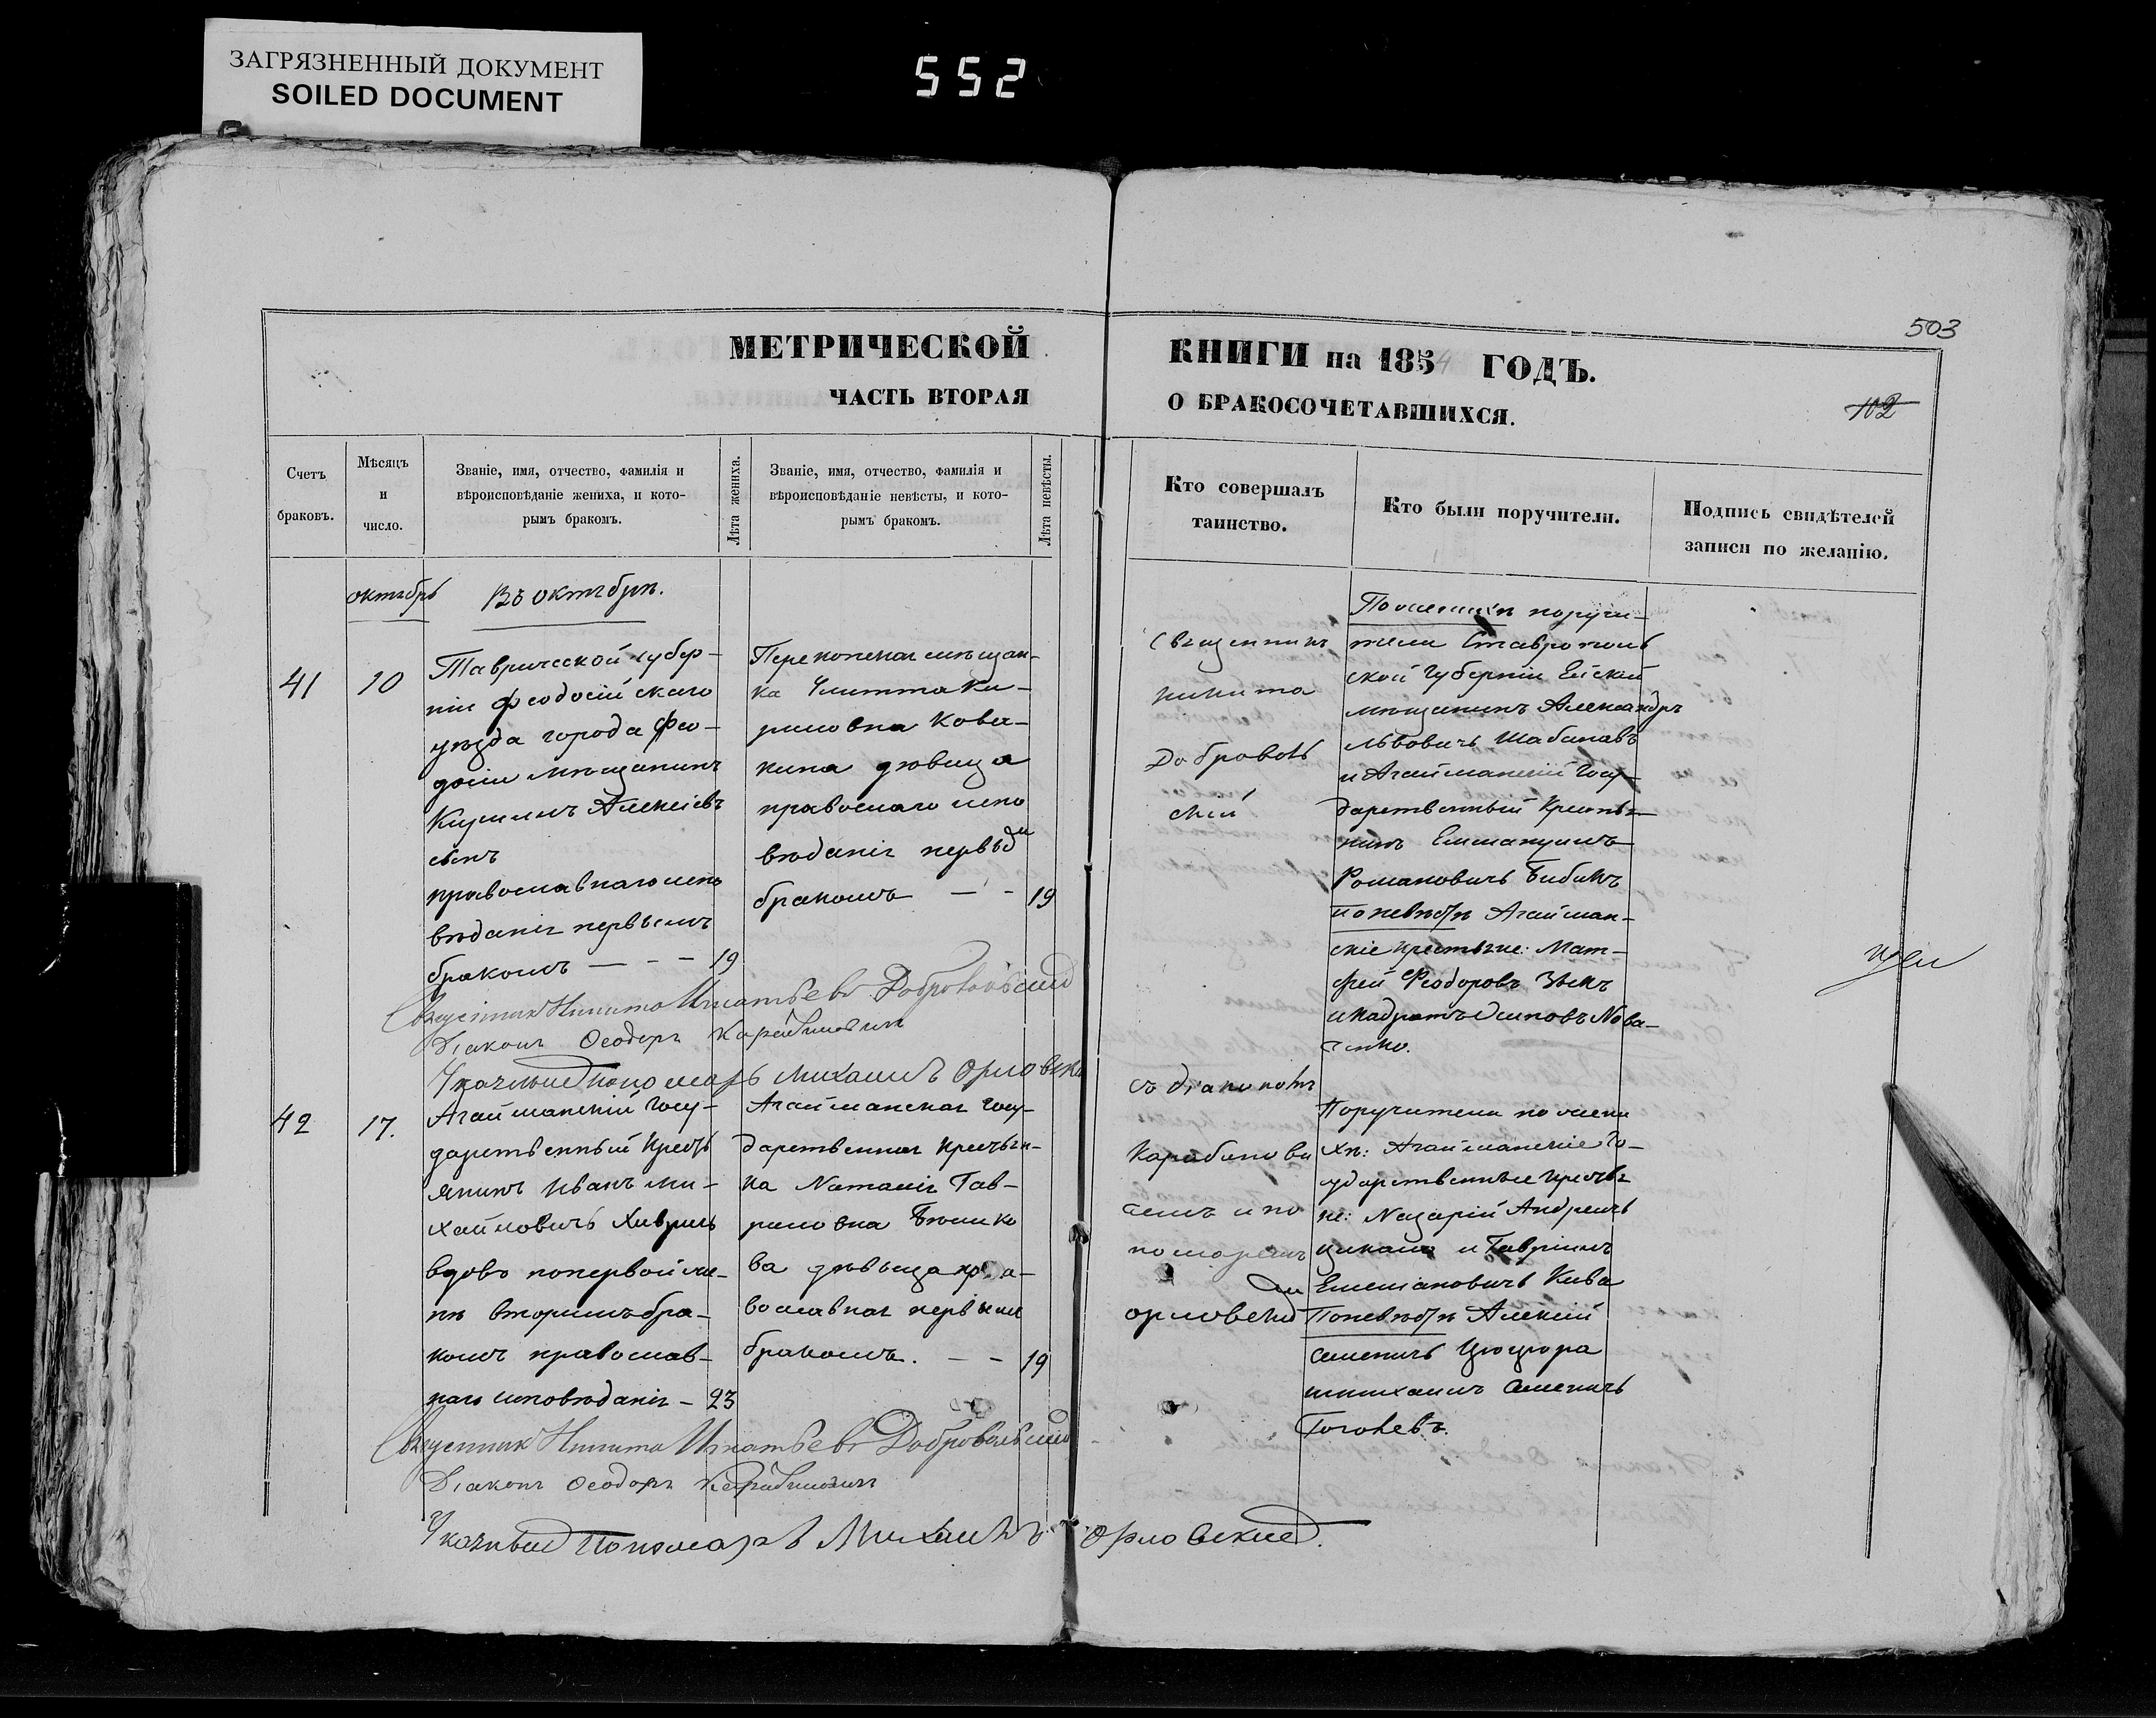 ЗАГРЯЗНЕННЫЙ ДОКУМЕНТ
SOILED DOCUMENT
552
503
МЕТРИЧЕСКОЙ КНИГИ на 1854 ГОДЪ.
ЧАСТЬ ВТОРАЯ О БРАКОСОЧЕТАВШИХСЯ.
102
Счетъ
браковъ.
Мѣсяцъ
и
число.
Званіе, имя, отчество, фамилія и
вѣроисповѣданіе жениха, и кото-
рымъ бракомъ.
Лѣта жениха.
Званіе, имя, отчество, фамилія и
вѣроисповѣданіе невѣсты, и кото-
рымъ бракомъ.
Лѣта невѣсты.
Кто совершалъ
таинство.
Кто были поручители.
Подпись свидѣтелей
записи по желанію.
октябрь
Въ октябрѣ.
41
10
Таврической губер-
ніи Феодосійскаго
уѣзда города Фео-
досіи мѣщанинъ
Кирилъ Алексіевъ
сынъ
православнаго испо
вѣданія первымъ
бракомъ — - - 19
Перекопская мѣщан-
ка
риловна Кова-
кина дѣвица
испо
вѣданія первы
бракомъ — - 19
Священникъ
Никита
Доброволь
скій
По женихѣ поручи-
тели Ставрополь
ской губерніи Ейскій
мѣщанинъ Александръ
Львовичъ Шабановъ
и Агайманскій Госу-
дарственный Крестья-
нинъ Еммануилъ
Романовичъ Бибикъ
по невѣстѣ Агайман-
скіе крестьяне: Мат-
фей Феодоровъ Зыкъ
Священник Никита Игнатьевъ Добровольский
Діаконъ Феодоръ Карабиновичъ
Указный пономарь Михаилъ Орловски
42
17.
Агайманскій Госу-
дарственный Кресть
янинъ Иванъ Ми-
хайловичъ Хиврич
вдовъ по первой же-
нѣ вторымъ бра-
комъ православ-
наго исповѣданія - 23
Агайманская Госу-
дарственная Крестьян-
ка Наталія Гав-
риловна Бѣлико
ва дѣвица пра-
вославная первым
бракомъ. - - 19
съ діакономъ
Карабинови
чемъ и по
номаремъ
Орловскимъ
Поручители по жени
хѣ: Агайманскіе Го-
ударственные крестья
не: Назарій Андреичъ
и Гавріилъ
Емельяновичъ Кива
По невѣстѣ Алексій
Семеничъ Цюцюра
и Михаилъ Семеничъ
Гоголевъ.
Священник Никита Игнатьевъ Добровольский
Діаконъ Феодоръ Карабиновичъ
Указный Пономарь Михаилъ Орловский.